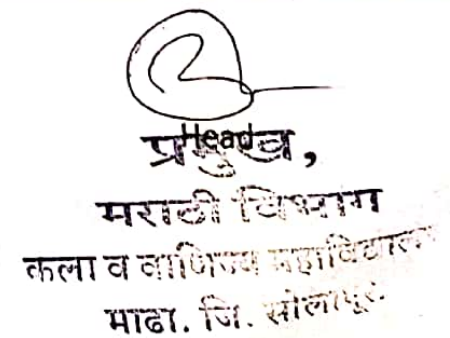 Head
प्रमुख,
मराठी विभाग
कला व वाणिज्य महाविद्यालय
माढा. जि. सोलापूर.